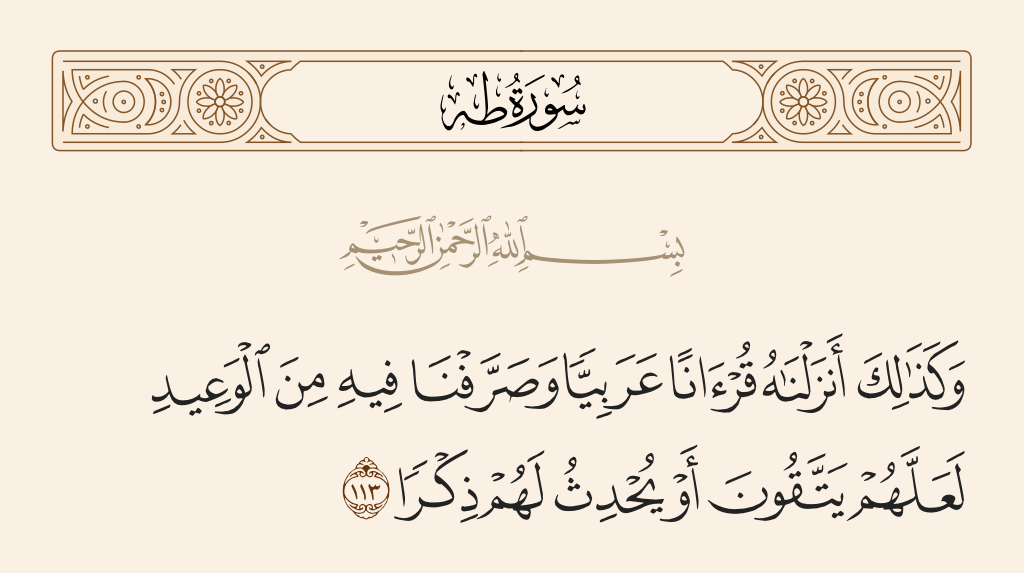 سُورَةُ طه
بِسْمِ ٱللَّهِ ٱلرَّحْمَٰنِ ٱلرَّحِيمِ
وَكَذَٰلِكَ أَنزَلْنَٰهُ قُرْءَانًا عَرَبِيًّا وَصَرَّفْنَا فِيهِ مِنَ ٱلْوَعِيدِ
لَعَلَّهُمْ يَتَّقُونَ أَوْ يُحْدِثُ لَهُمْ ذِكْرًا ١١٣